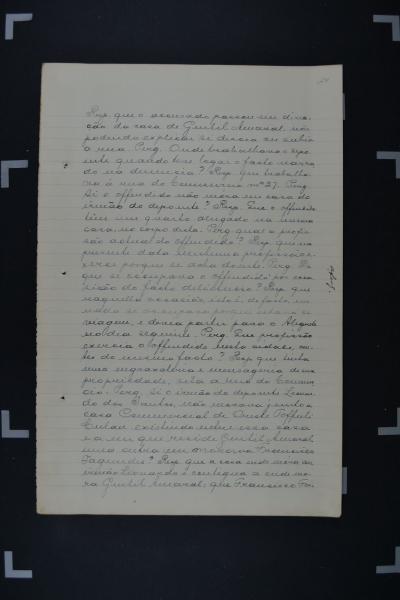 Resp. que o accusado passou em dire-
ção da casa de Gentil Amaral, não
podendo explicar se descia ou subia
a rua. Perg. Onde trabalhava o depo-
ente quando teve logar o facto narra-
do na denuncia? Resp. que trabalha-
va á rua do Commercio nº 27. Perg.
Si o offendido não mora em casa do
irmão do depoente? Resp. Que o offendido
tem um quarto alugado na mesma
casa, no corpo della. Perg. qual a profis-
são actual do offendido? Resp. que na
presente data nenhuma profissão
exerce porque se acha doente. Perg. Em
que se occupava o offendido por occa-
sião do facto delictuoso? Resp. que
naquella occasião, isto é, do facto, em
nada se occupava porque estava de
viagem, e devia partir para o Alegrete
no dia seguinte. Perg. Que profissão
exercia o offendido nesta cidade, an-
tes do mesmo facto? Resp. que tinha
uma engraxateria e mensageria de sua
propriedade, sita á rua do Commer-
cio. Perg. Si o irmão do depoente Leonar-
do dos Santos, não morava junto a
casa Commercial de
existindo entre essa casa
e a em que reside Gentil Amaral
uma outra em que morava Francisco
Fagundes? Resp. que a casa onde mora seu
irmão Leonardo é contigua a onde mo-
ra Gentil Amaral; que Francisco Fa-